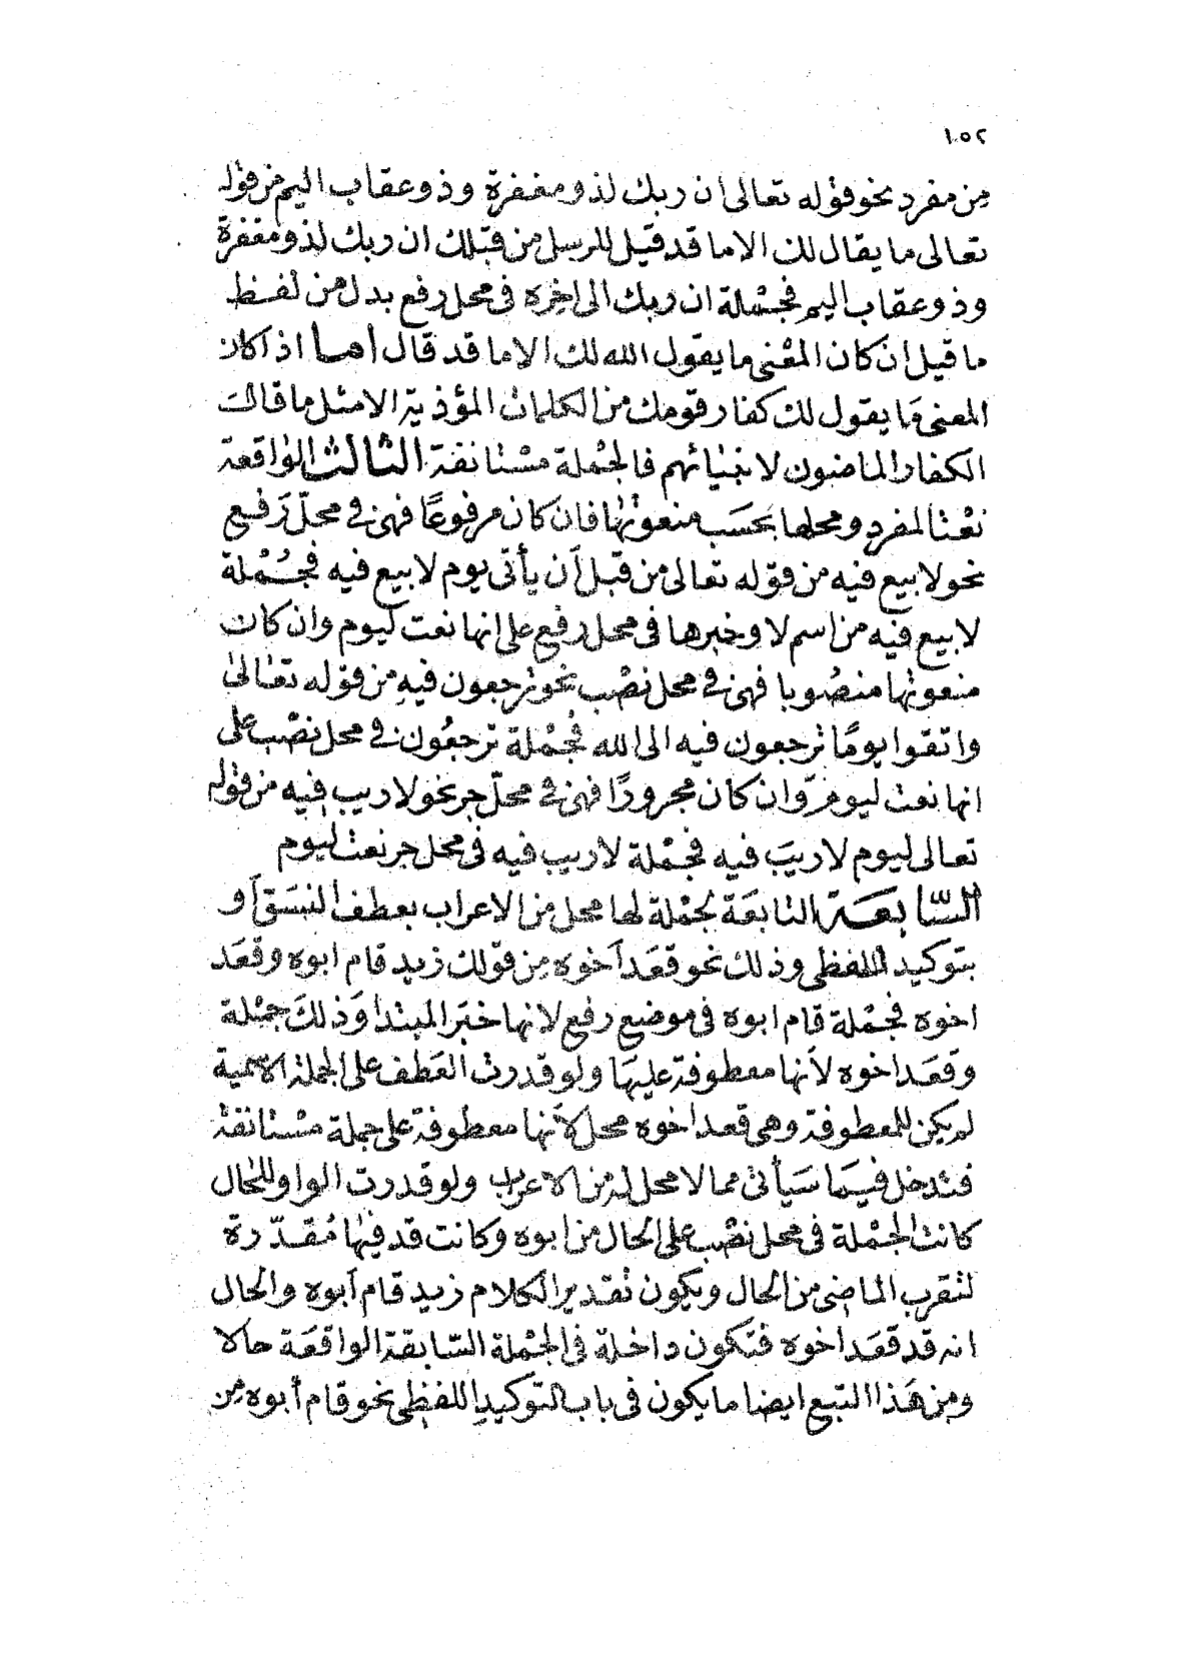 ١٥٢
من مفرد نحو قوله تعالى ان ربك لذو مغفرة وذو عقاب اليم من قوله
تعالى ما يقال لك الا ما قد قيل للرسل من قبلك ان ربك لذو مغفرة
وذو عقاب اليم فجملة ان ربك الى اخره فى محل رفع بدل من لفظ
ما قيل ان كان المعنى ما يقول الله لك الا ما قد قال اما اذا كان
المعنى ما يقول لك كفار قومك من الكلمات المؤذية الا مثل ما قالت
الكفار الماضون لانبيائهم فالجملة مستانفة الثالث الواقعة
نعتا لمفرد ومحلها بحسب منعوتها فان كان مرفوعًا فهى فى محلّ رفع
نحو لا بيع فيه من قوله تعالى من قبل أن يأتى يوم لا بيع فيه فجُملة
لا بيع فيه من اسم لا وخبرها فى محل رفع على انها نعت ليوم وان كان
منعوتها منصُوبا فهى فى محل نصْب نحو ترجعون فيهِ من قوله تعَالىٰ
واتقوا يومًا ترجعون فيه الى الله فجُملة ترجعُون فى محل نصْب على
انها نعت ليوم وان كان مجرورًا فهى فى محلّ جر نحو لا ريب فيه من قوله
تعالى ليوم لا ريبَ فيه فجْملة لا ريب فيه فى محل جر نعت ليوم
السّابعَة التابعَة لجمْلة لها محل من الاعراب بعطف النسَق أو
بتوكيد اللفظى وذلك نحو قعَد أخوه مِن قولك زيد قام ابوه وقعَد
اخوه فجْملة قام ابوه فى موضع رفع لانها خبَر المبتدا وَذلكَ جمْلة
وقعَد اخوه لأنها معطوفة عليهَا ولو قدرت العَطف على الجملة الاسمية
لم يكن للمعطوفة وهى قعد اخوه محل لأنها معطوفة على جملة مسْتانفة
فتدخل فيمَا سَيأتى مما لا محل له من الاعراب ولو قدرت الواو للحال
كانت الجمْلة فى محل نصْب على الحال من ابوه وكانت قد فيهَا مُقدّرة
لتقرب الماضى من الحال ويكون تقدير الكلام زيد قام أبوه والحال
انه قد قعَد اخوه فتكون داخلة فى الجمْلة السّابقة الواقعَة حالا
ومِن هَذا التبع ايضا ما يكون فى باب التوكيدِ اللفظِى نحو قام أبوه مِن